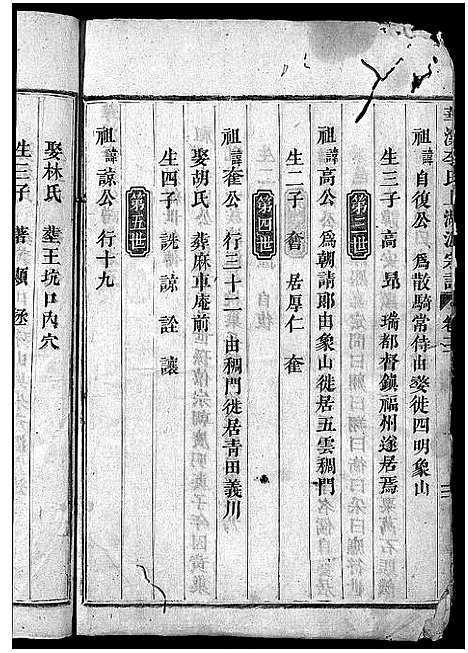 祖諱自復公 爲散騎常侍由婺徙四明象山
生三子 高 昻 瑞都督鎮福州遂居焉
第三世
祖諱高公 爲朝請郎由象山徙居五雲稠門
生二子 奝 居厚仁 奎
第四世
祖諱奎公 行三十二 由稠門徙居青田義川
娶胡氏 葬麻車庵前
生四子 詵 諒 詮 讓
第五世
祖諱諒公 行十九
娶林氏 塟王坑口內穴
生三子 著 顯 丞